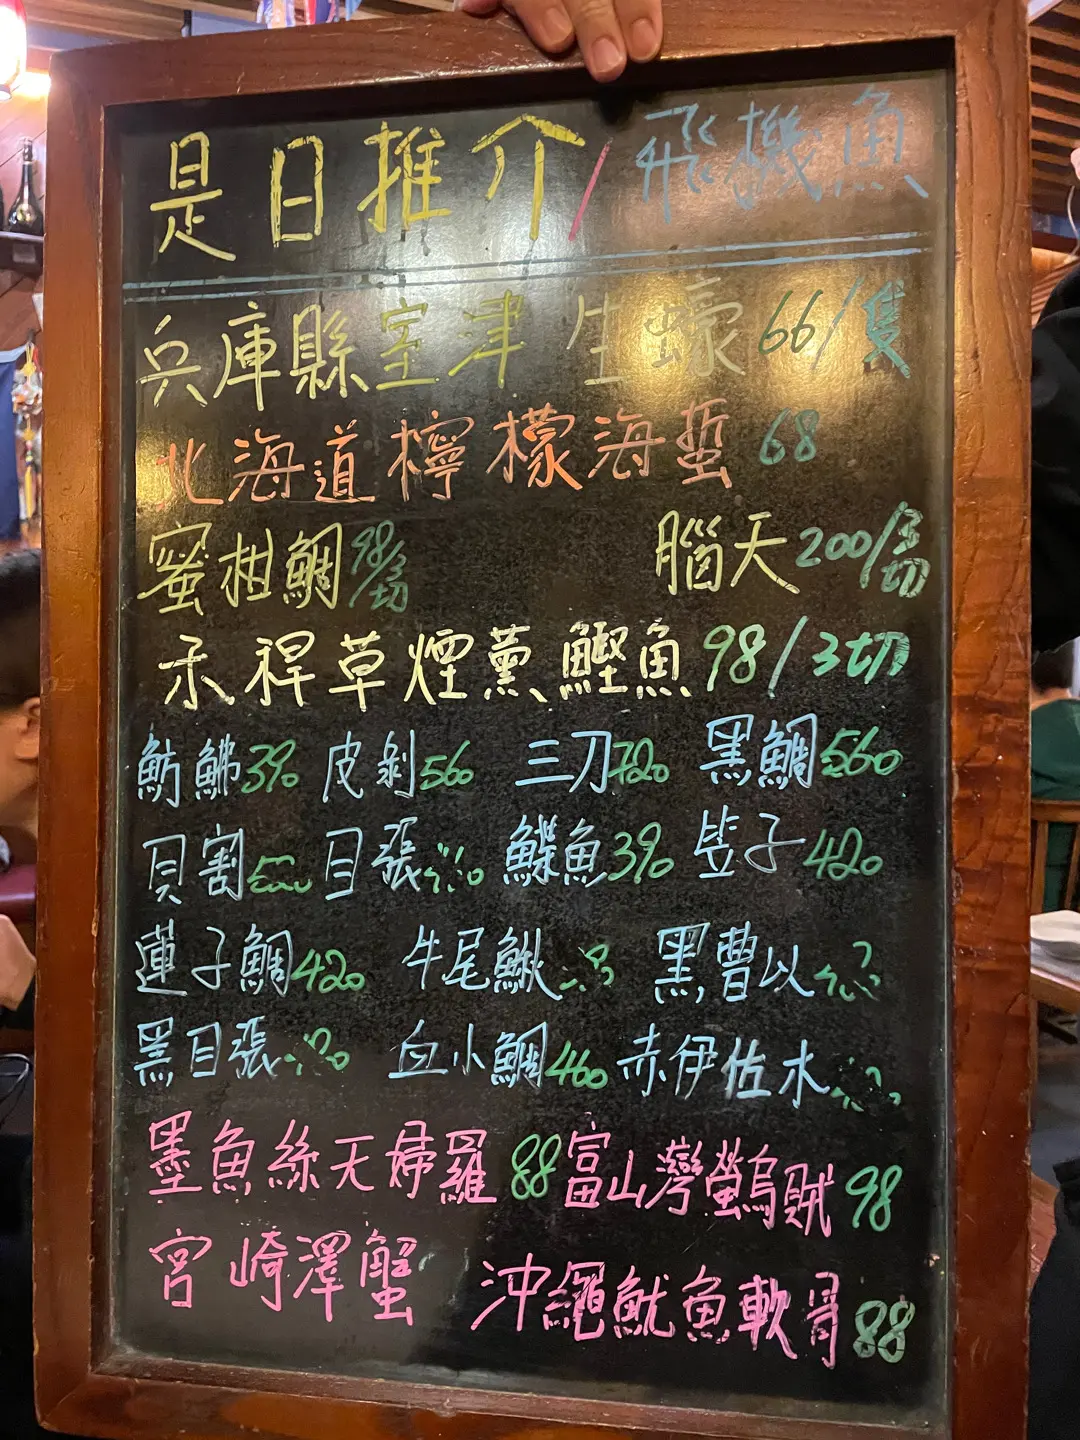 是日推介/飛機魚
兵庫縣室津 生蠔 66/隻
北海道檸檬海蜇 68
蜜柑鯛 98/ 腦天 200/
禾稈草煙薰鰹魚 98/3切
魴鮄 390 皮剝 560 三刀 720 黑鯛 560
貝割 目張 鰈魚 390 竖子 420
蓮子鯛 420 牛尾鰍 黑曹以
黑目張 血小鯛 460 赤伊佐木
墨魚絲天婦羅 88 富山灣螢烏賊 98
宮崎澤蟹 沖繩魷魚軟骨 88